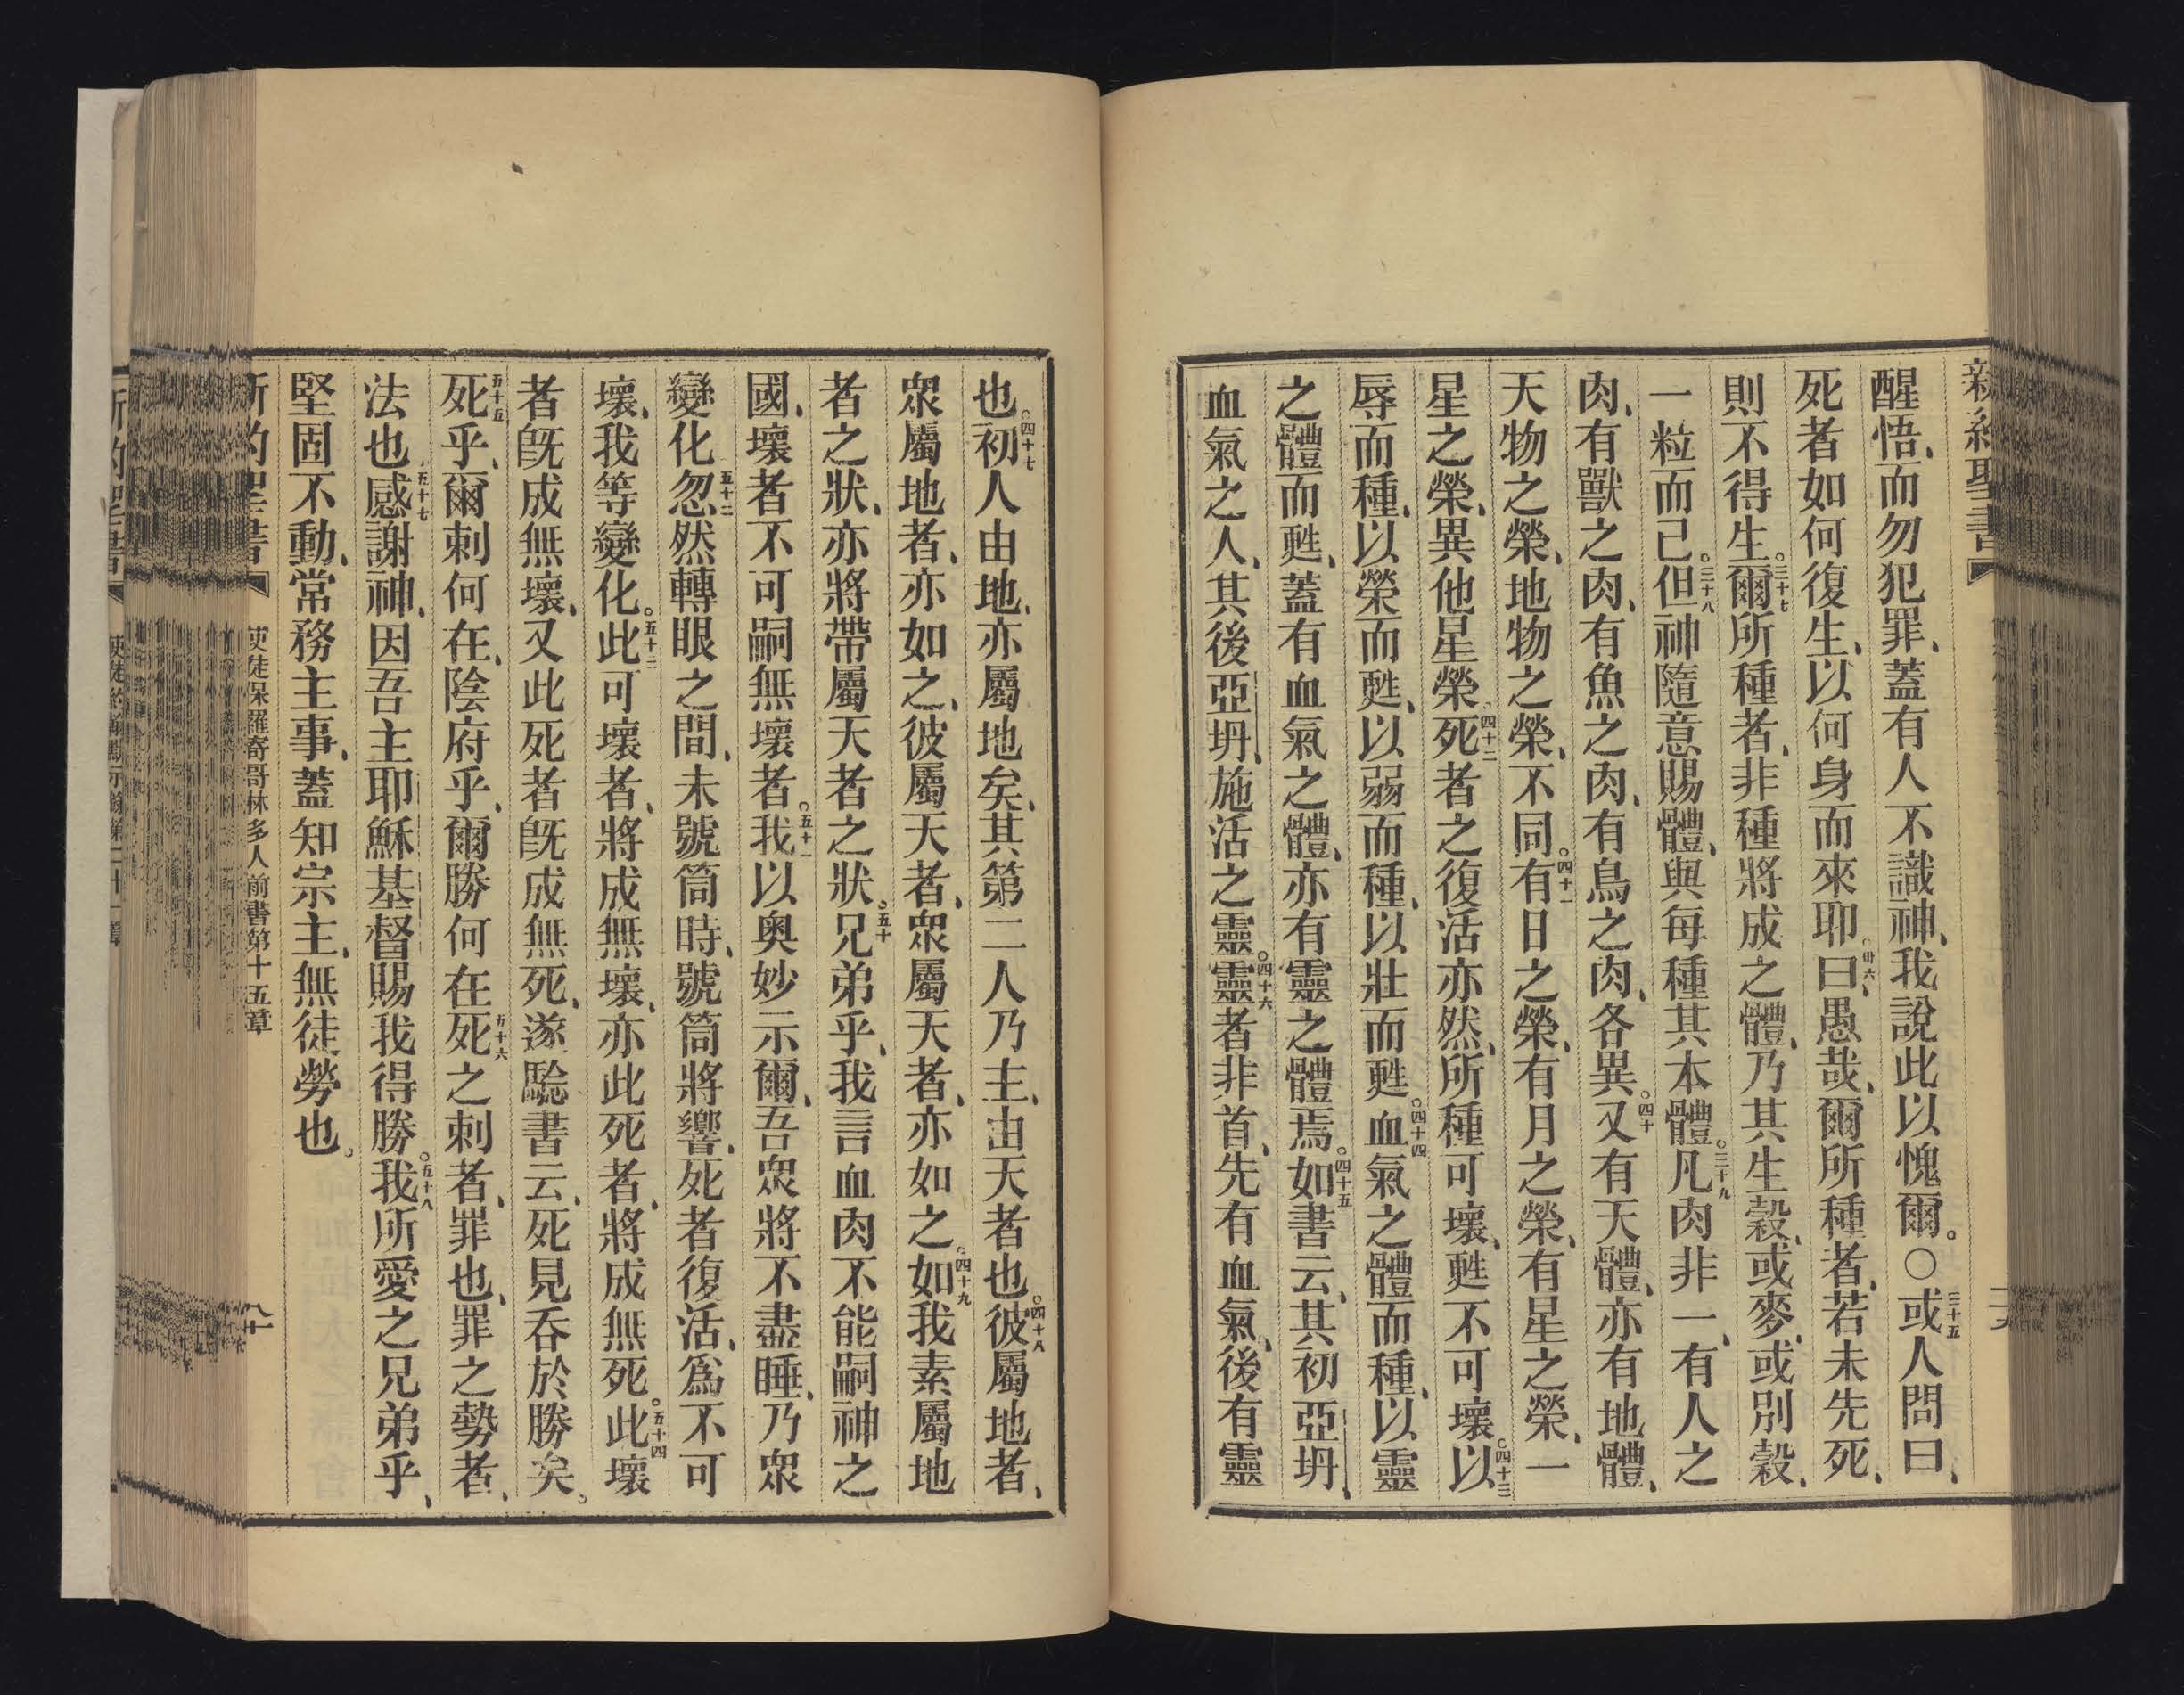 新約聖書
二六
醒悟、而勿犯罪、蓋有人不識神、我說此以愧爾。○三十五或人問曰、
死者如何復生、以何身而來耶。卅六曰、愚哉、爾所種者、若未先死、
則不得生。三十七爾所種者、非種將成之體、乃其生穀、或麥、或別穀、
一粒而已。三十八但神隨意賜體、與每種其本體。三十九凡肉非一、有人之
肉、有獸之肉、有魚之肉、有鳥之肉、各異。四十又有天體、亦有地體、
天物之榮、地物之榮、不同。四十一有日之榮、有月之榮、有星之榮、一
星之榮、異他星榮。四十二死者之復活亦然、所種可壞、甦不可壞。四十三以
辱而種、以榮而甦、以弱而種、以壯而甦。四十四血氣之體而種、以靈
之體而甦、蓋有血氣之體、亦有靈之體焉。四十五如書云、其初亞坍、
血氣之人、其後亞坍、施活之靈。四十六靈者非首、先有血氣、後有靈
也。四十七初人由地、亦屬地矣、其第二人乃主、由天者也。四十八彼屬地者、
眾屬地者、亦如之、彼屬天者、眾屬天者、亦如之。四十九如我素屬地
者之狀、亦將帶屬天者之狀。五十兄弟乎、我言血肉不能嗣神之
國、壞者不可嗣無壞者。五十一我以奧妙示爾、吾眾將不盡睡、乃眾
變化、五十二忽然轉眼之間、未號筒時、號筒將響、死者復活、為不可
壞、我等變化。五十三此可壞者、將成無壞、亦此死者、將成無死。五十四此壞
者旣成無壞、又此死者旣成無死、遂騐書云、死見吞於勝矣。
五十五死乎、爾刺何在、陰府乎、爾勝何在、五十六死之刺者、罪也、罪之勢者、
法也、五十七感謝神、因吾主耶穌基督賜我得勝。五十八我所愛之兄弟乎、
堅固不動、常務主事、蓋知宗主、無徒勞也。
新約聖書
使徒保羅寄哥林多人前書第十五章
八十